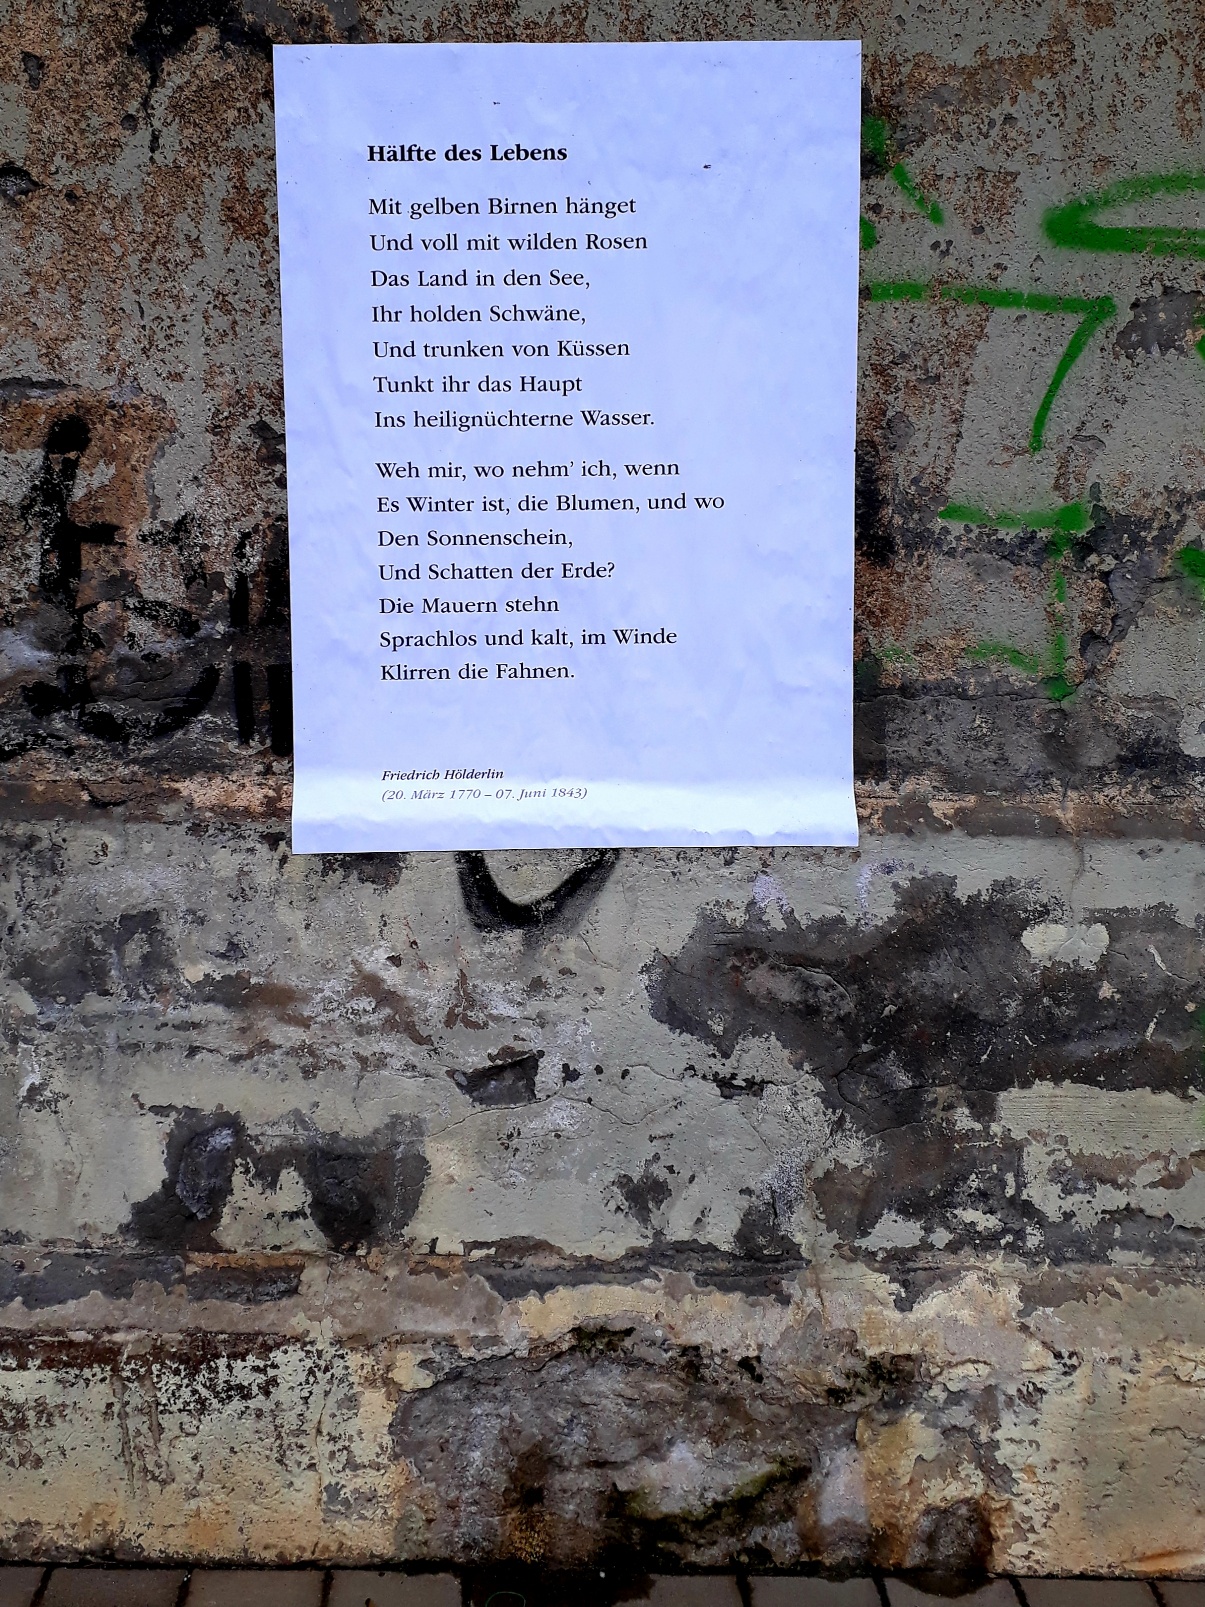 Hälfte des Lebens
Mit gelben Birnen hänget
Und voll mit wilden Rosen
Das Land in den See,
Ihr holden Schwäne,
Und trunken von Küssen
Tunkt ihr das Haupt
Ins heilignüchterne Wasser.
Weh mir, wo nehm’ ich, wenn
Es Winter ist, die Blumen, und wo
Den Sonnenschein,
Und Schatten der Erde?
Die Mauern stehn
Sprachlos und kalt, im Winde
Klirren die Fahnen.
Friedrich Hölderlin
(20. März 1770 – 07. Juni 1843)